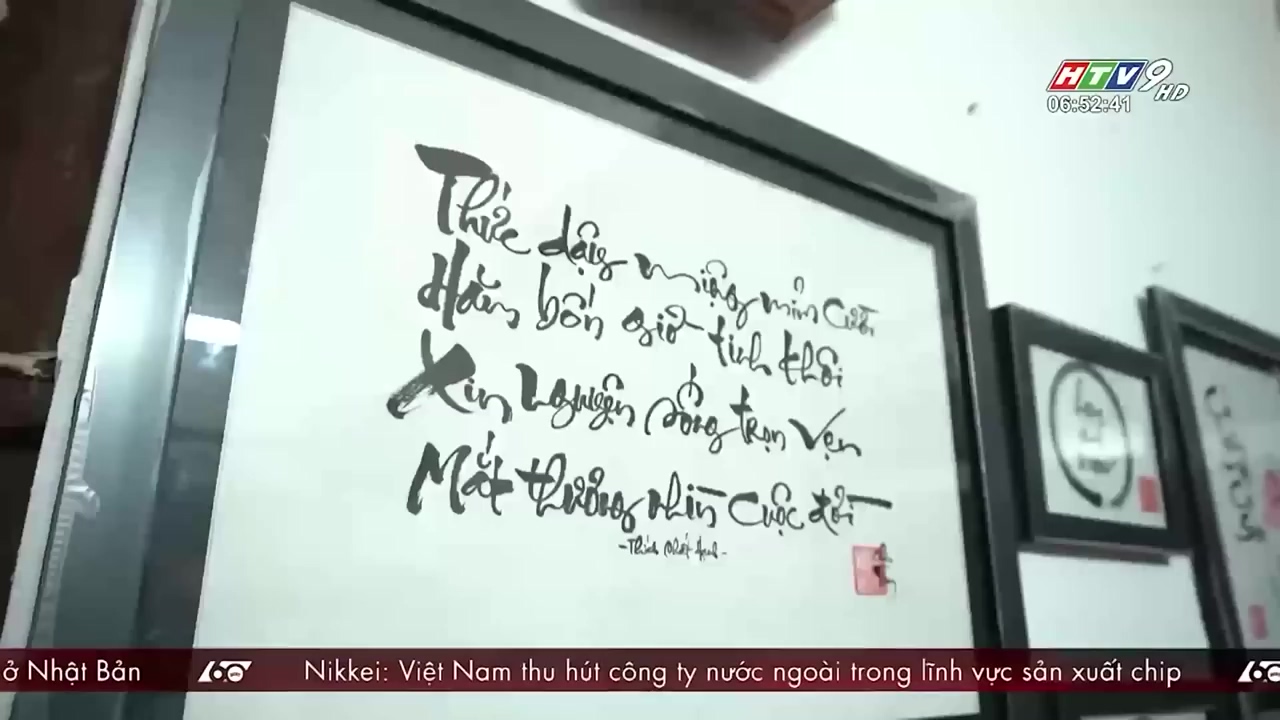 HTV9 HD
06:52:41
Thức dậy miệng mỉm cười
Hăm bốn giờ tinh khôi
Xin nguyện sống trọn vẹn
Mắt thương nhìn cuộc đời
- Thích Nhất Hạnh -
ở Nhật Bản 60 Nikkei: Việt Nam thu hút công ty nước ngoài trong lĩnh vực sản xuất chip